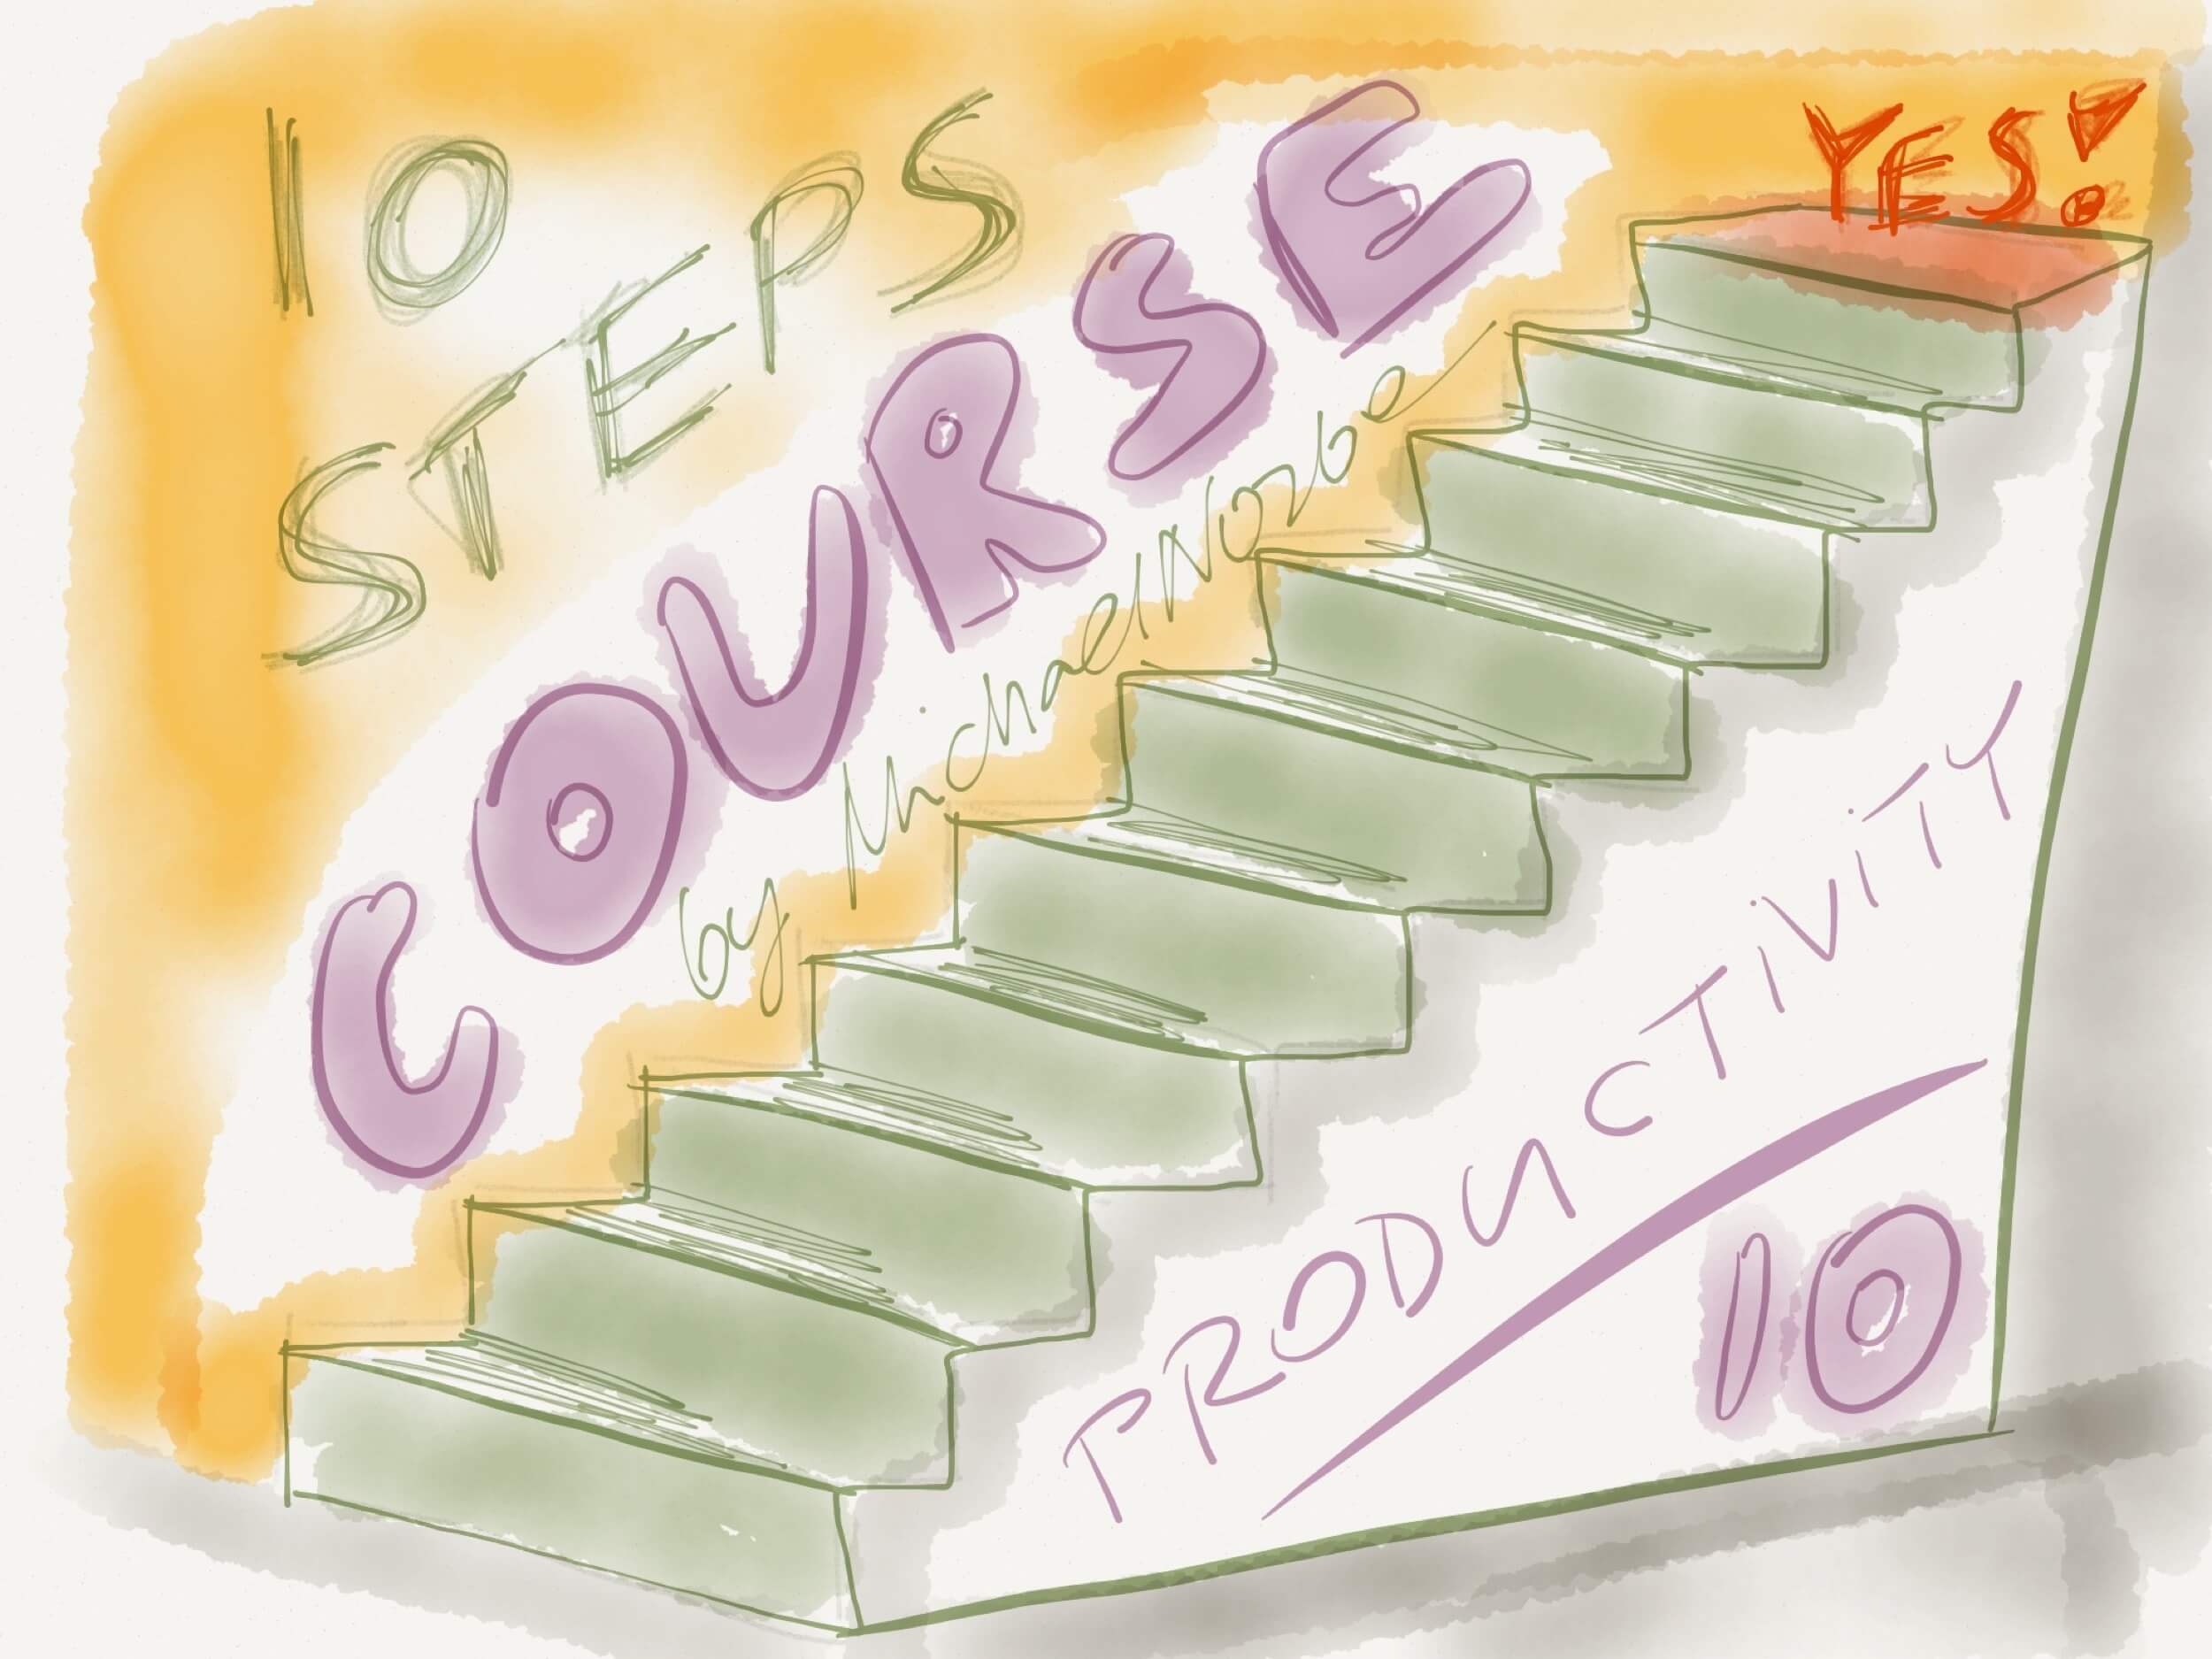 10
STEPS
COURSE
by Michael Nozbe
YES!
PRODUCTIVITY
10